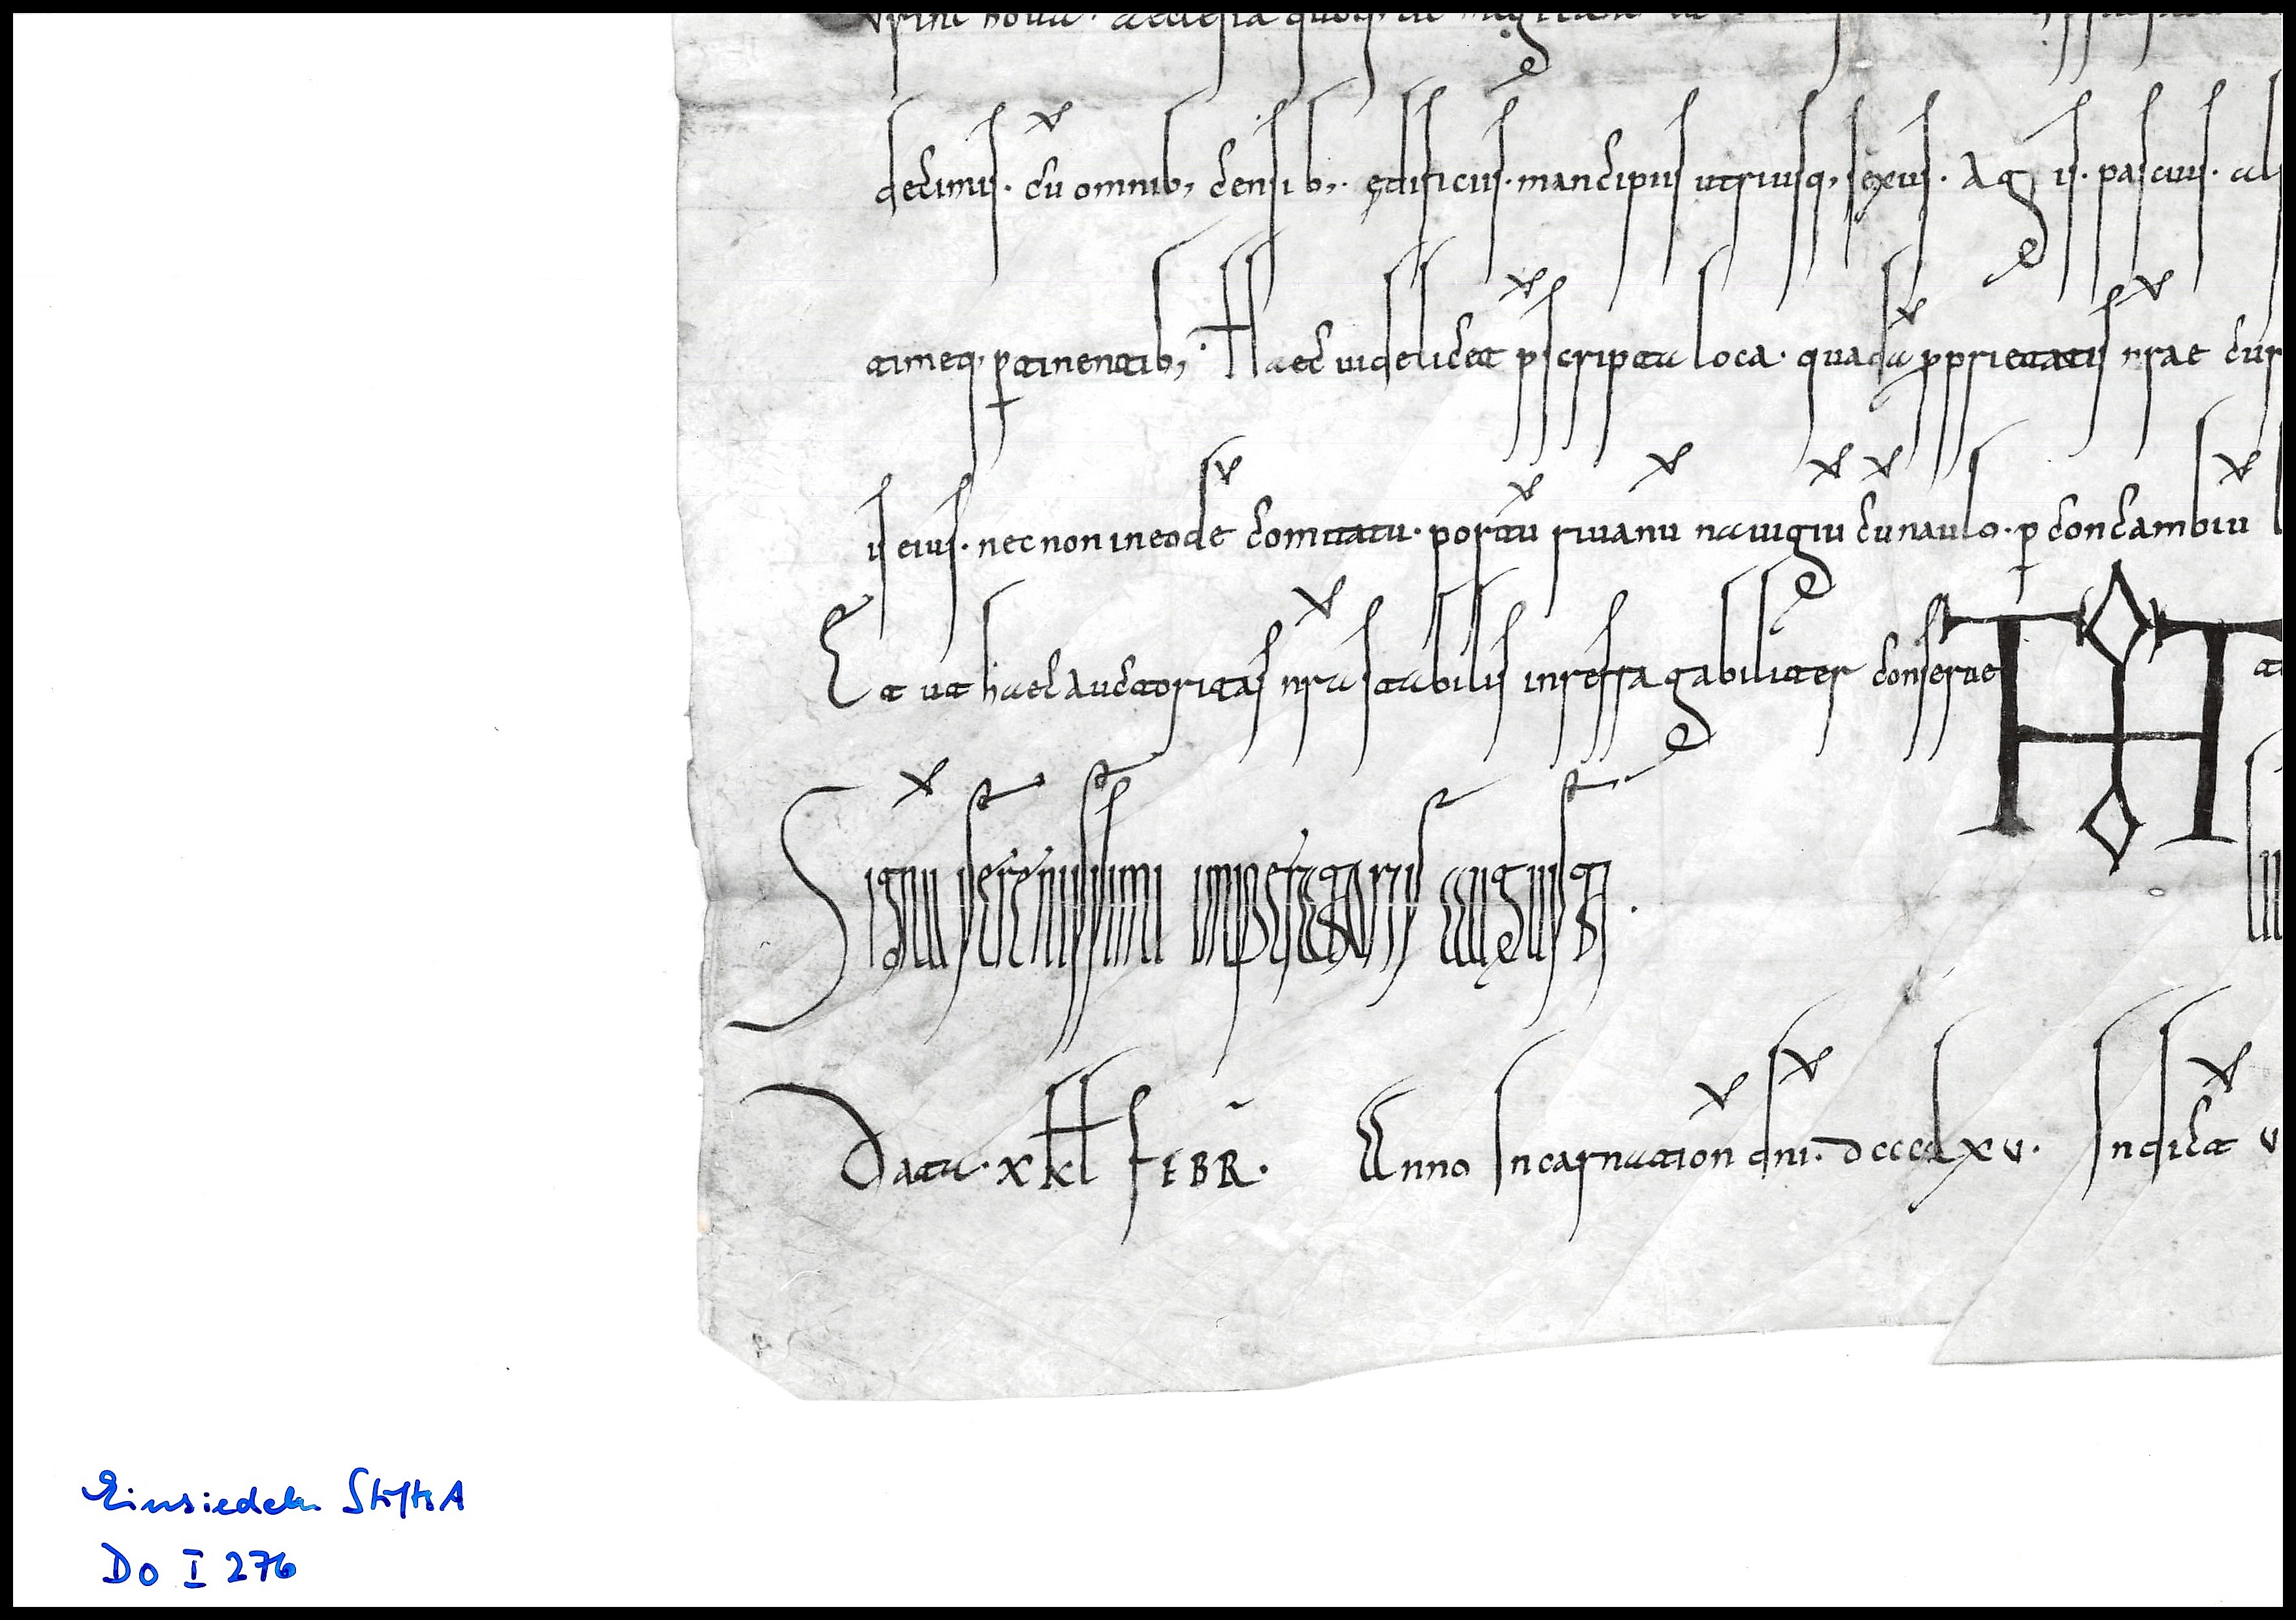 nouu. aecclesia
decimis. cū omnib; censib;. edificiis. mancipiis utriusq; sexus. Agris. pascuis.
atineq. ptinentib; Haec uidelicet pscripta loca. quae ad pprietatē nrae cur
is eius. nec non in eodē comitatu. portū riuanū nauigiū cū naulo. p concambiū
Et ut haec auctoritas nra stabilis inrefragabiliter conseruet
Signū serenissimi imperatoris augusti.
Data. x kl FEBR. Anno Incarnation dni. dcccclxv. Indict v
Einsiedeln StiftsA
DO I 276